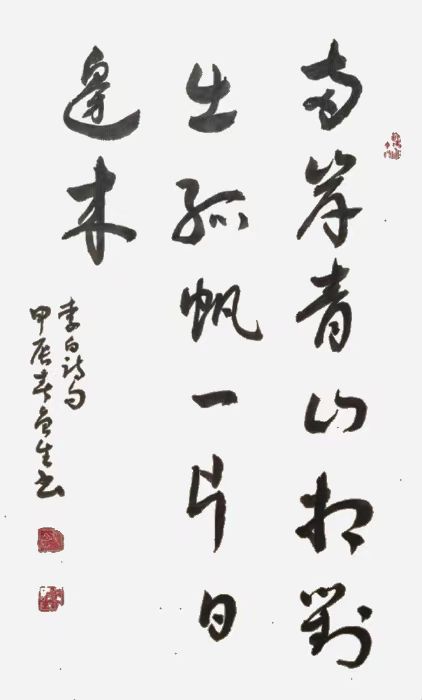 两岸青山相對
出孤帆一片日
邊来
李白诗句
甲辰春生书